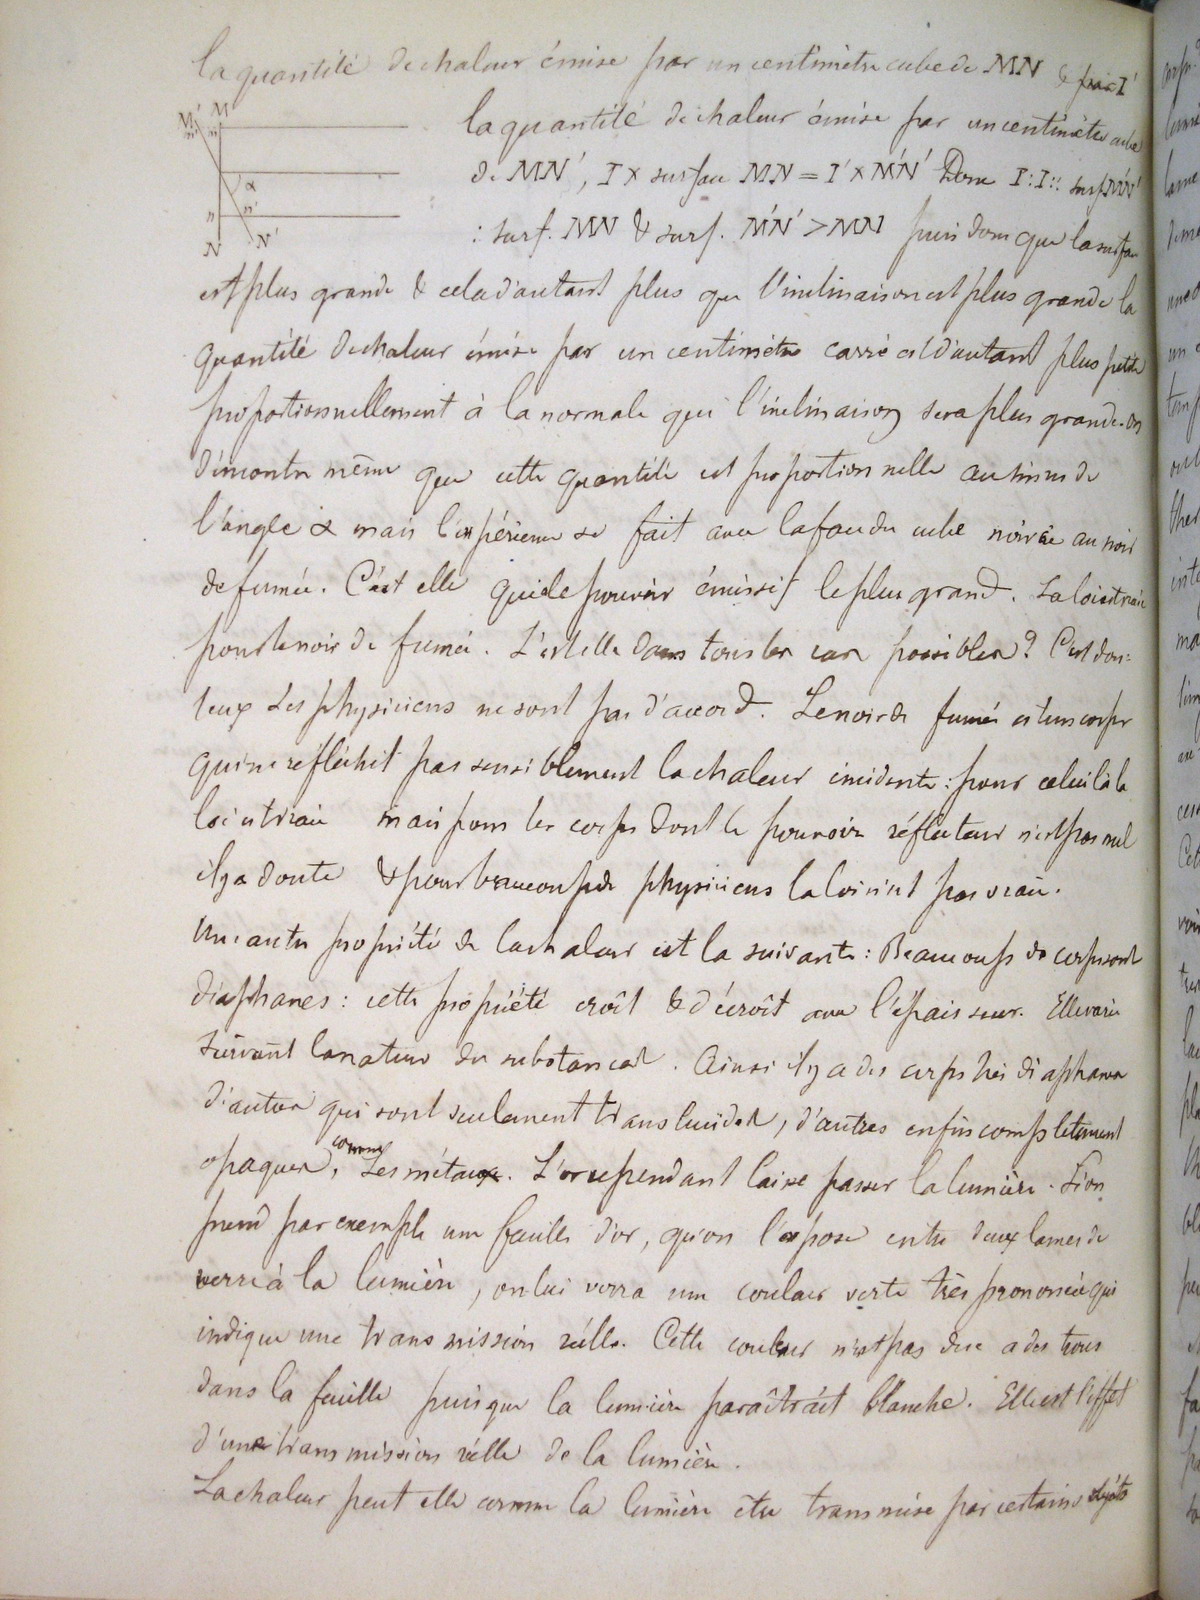 la quantité de chaleur émise par un centimètre cube de MN & I'
M' M
la quantité de chaleur émise par un centimètre cube
m' m
de MN', I × surface MN = I' × M'N' Donc I : I' :: surf M'N'
α
n n'
: surf. MN & surf. M'N' > MN puis donc que la surface
N N'
est plus grande & cela d'autant plus que l'inclinaison est plus grande la
quantité de chaleur émise par un centimètre carré est d'autant plus petite
proportionnellement à la normale que l'inclinaison sera plus grande. On
démontre même que cette quantité est proportionnelle au sinus de
l'angle α mais l'expérience se fait avec la face du cube noircie au noir
de fumée. C'est elle qui a le pouvoir émissif le plus grand. La loi est vraie
pour le noir de fumée. L'est elle dans tous les cas possibles? C'est dou=
teux Les physiciens ne sont pas d'accord. Le noir de fumée est un corps
qui ne réfléchit pas sensiblement la chaleur incidente : pour celui là la
loi est vraie mais pour les corps dont le pouvoir réflecteur n'est pas nul
il y a doute & pour beaucoup de physiciens la loi n'est pas vraie.
Une autre propriété de la chaleur est la suivante : Beaucoup de corps sont
diaphanes : cette propriété croît & décroît avec l'épaisseur. Elle varie
suivant la nature des substances. Ainsi il y a des corps très diaphanes
d'autres qui sont seulement translucides, d'autres enfin complètement
opaques, comme Les métaux. L'or cependant laisse passer la lumière. Si on
prend par exemple une feuille d'or, qu'on l'expose entre deux lames de
verre à la lumière, on lui verra une couleur verte très prononcée qui
indique une transmission réelle. Cette couleur n'est pas due a des trous
dans la feuille puisque la lumière paraîtrait blanche. Elle est l'effet
d'une transmission réelle de la lumière.
La chaleur peut elle comme la lumière être transmise par certains